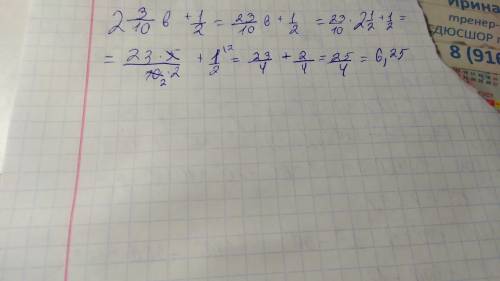 2 3/10 в + 1/2 = 23/10 в + 1/2 = 23/10 · 2 1/2 + 1/2 =
= 23 · 5/10₂ · 2 + 1/2 ^12 = 23/4 + 2/4 = 25/4 = 6,25
Ирина
тренер-
СДЮСШОР
8 (916